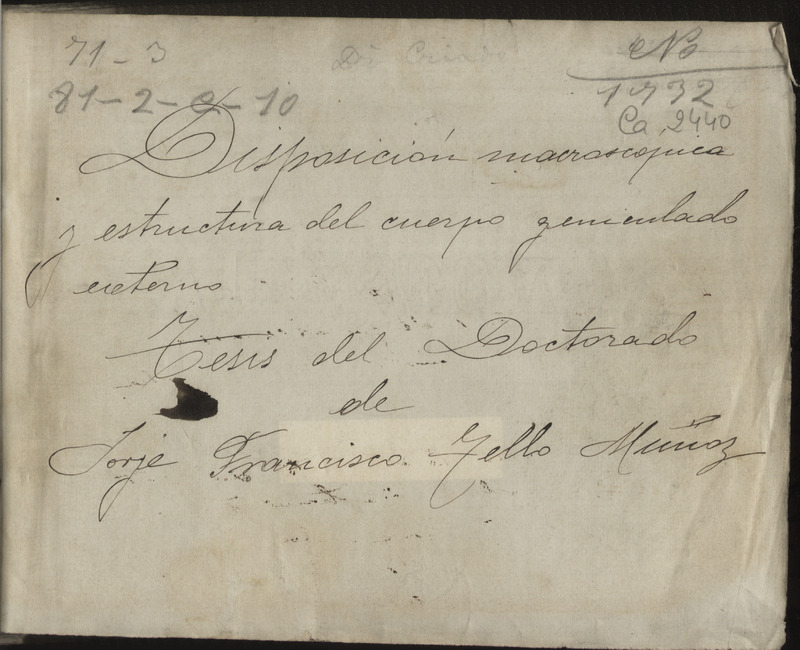 71-3
Nº
81-2-a-10
1732
Ca 2440
Disposición macroscopica
y estructura del cuerpo geniculado
externo
Tesis del Doctorado
de
Jorje Francisco Tello Muñoz